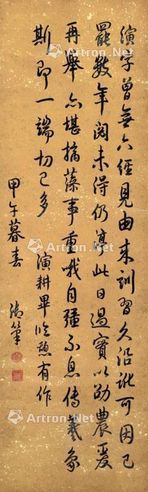 演字曾無六經見由來訓習久沿訛可因已
罷數年閱未得仍此日過實以勸農爰
再舉亦堪摛藻事重哦自強不息傳羲象
斯即一端切己多 演耕畢憩有作
甲午暮春 御筆